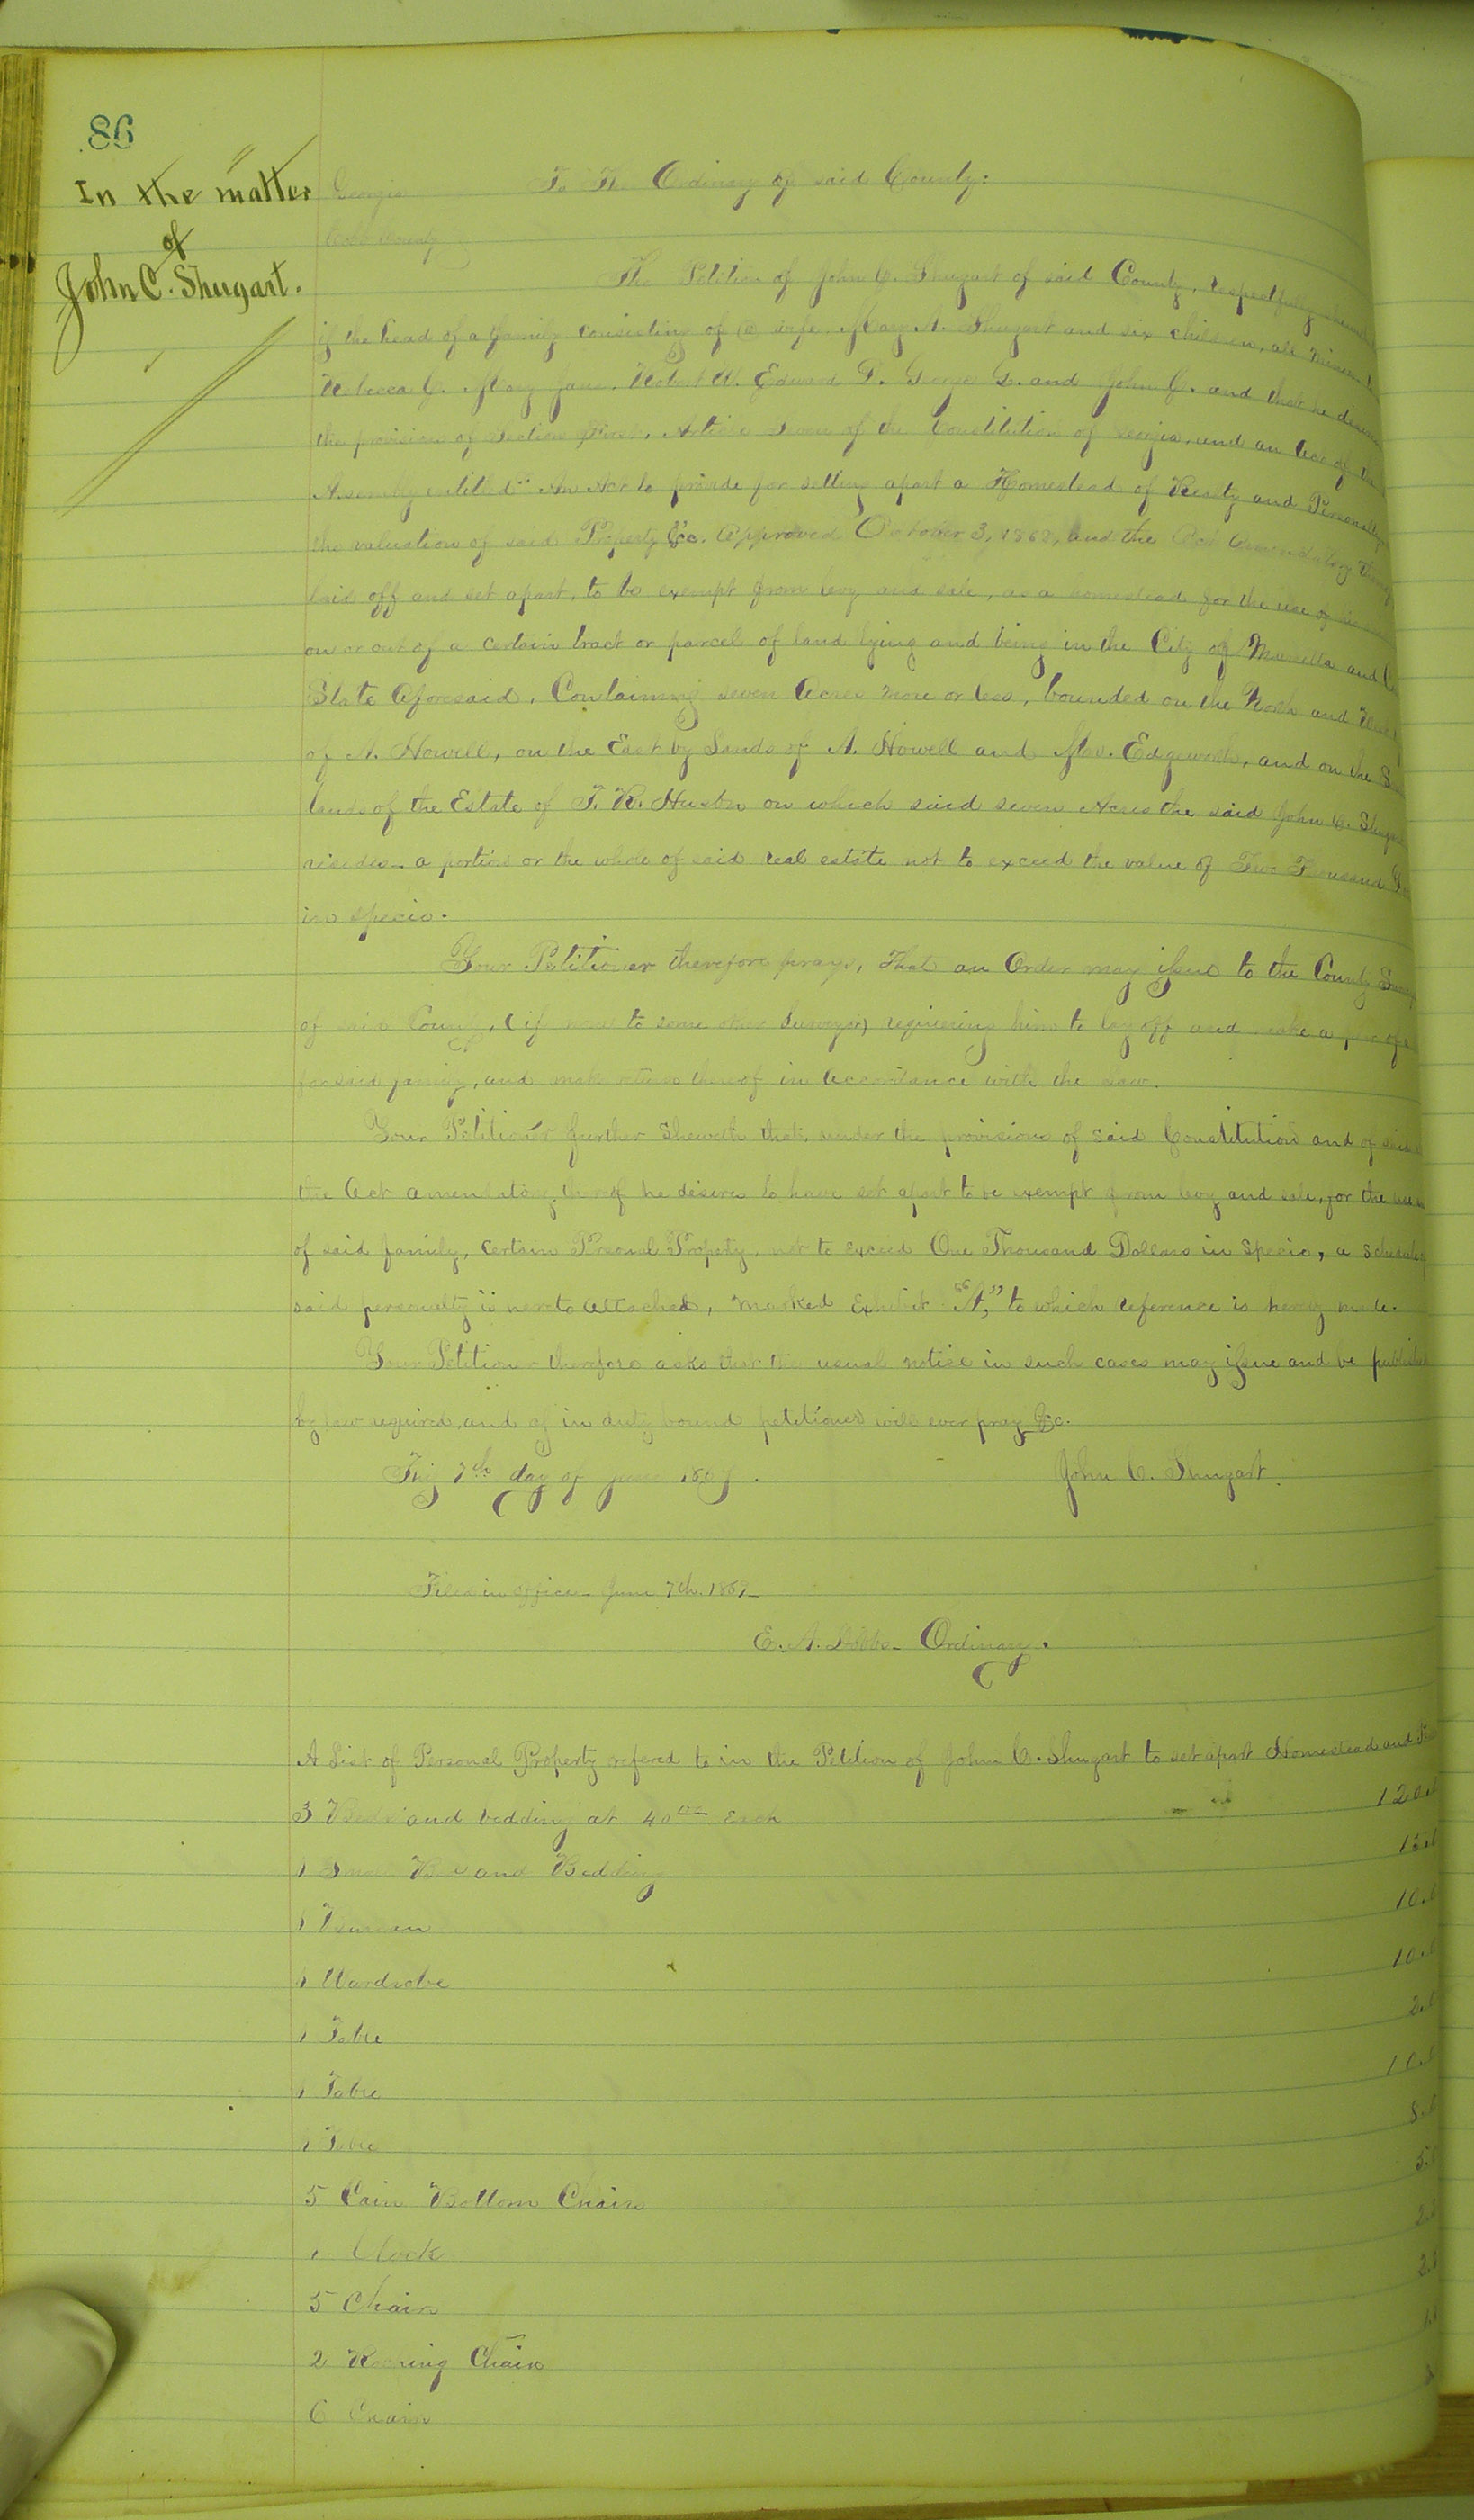 86
In the matter
of
John C. Shugart.
Georgia To The Ordinary of said County:
Cobb County
The Petition of John C. Shugart of said County, respectfully sheweth
if the head of a family consisting of a wife, Mary A. Shugart and six children, all minors
Rebecca C. Mary Jane, Robert W. Edward P. George G. and John C. and that he desires
the provision of section first, Article seven of the Constitution of Georgia, and an Act of the
Assembly entitled "An Act to provide for setting apart a Homestead of Realty and Personalty
the valuation of said Property &c. Approved October 3, 1868, and the Act Amendatory thereof
laid off and set apart, to be exempt from levy and sale, as a homestead for the use of
on or out of a certain tract or parcel of land lying and being in the City of Marietta and
State Aforesaid, Containing seven Acres more or less, bounded on the North and West
of A. Howell, on the East by Lands of A. Howell and Mrs. Edgeworth, and on the
lands of the Estate of T. R. Huston on which said seven Acres the said John C. Shugart
resides a portion or the whole of said real estate not to exceed the value of Two Thousand
in specie.
Your Petitioner therefore prays, That an Order may issue to the County
of said County, (if none to some other Surveyor) requiring him to lay off and make a plat of
for said family, and make return thereof in accordance with the law.
Your Petitioner further sheweth that, under the provisions of said Constitution and of said
the Act amendatory thereof he desires to have set apart to be exempt from levy and sale, for the use
of said family, certain Presonal Property, not to exceed One Thousand Dollars in specie, a schedule
said personalty is hereto attached, marked Exhibit "A," to which reference is hereby made.
Your Petitioner therefore asks that the usual notice in such cases may issue and be published
by law required, and as in duty bound petitioner will ever pray &c.
This 7th day of June 1869. John C. Shugart.
Filed in office June 7th. 1869
E. A. Dobbs Ordinary.
A List of Personal Property refered to in the Petition of John C. Shugart to set apart Homestead and
3 Beds and bedding at 40 00 Each 120
1 Small Bed and Bedding 15
1 Bureau 10
1 Wardrobe 10
1 Table 2
1 Table 10
1 Table
5 Cain Bottom Chairs 5
1 Clock 2
5 Chairs 2
2 Rocking Chairs
6 Chairs